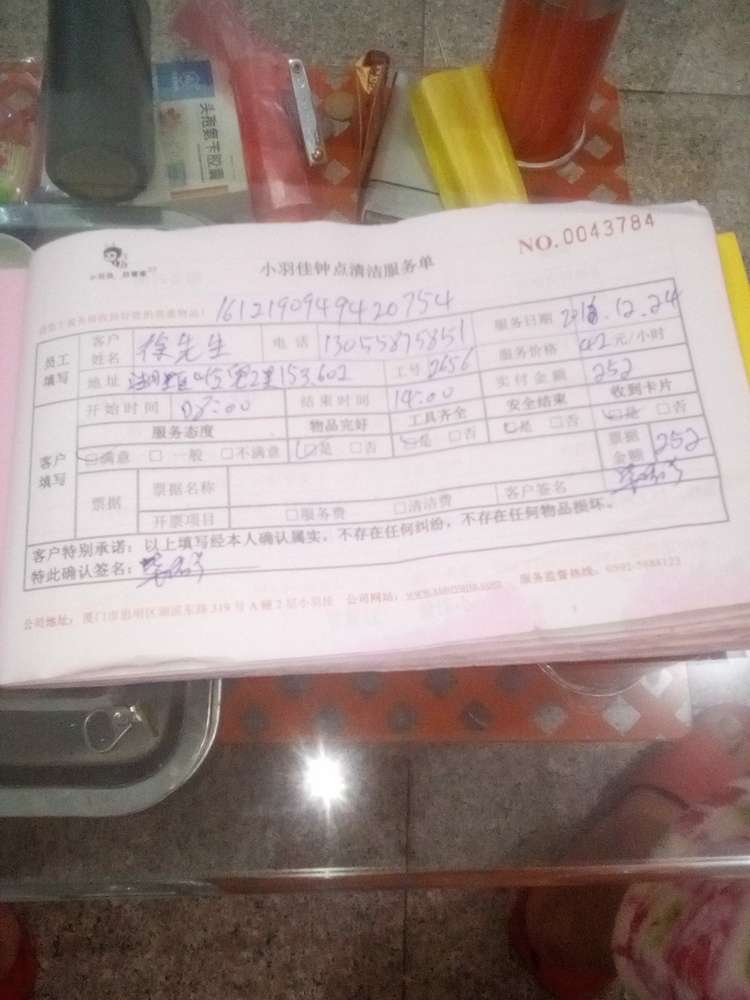 头孢氨苄胶囊
NO.0043784
小羽佳钟点清洁服务单
16121909494420754
员工填写 客户姓名 徐先生 电话 13055875851 服务日期 2016.12.24
地址 153.602 工号 2656 服务价格 42元/小时
客户填写 开始时间 08:00 结束时间 14:00 实付金额 252
服务态度 物品完好 工具齐全 安全结束 收到卡片
□满意 □一般 □不满意 □是 □否 □是 □否 □是 □否 □是 □否
票据 票据名称 票据金额 252
开票项目 □服务费 □清洁费 客户签名
客户特别承诺:以上填写经本人确认属实,不存在任何纠纷,不存在任何物品损坏。
特此确认签名:
公司地址:厦门市思明区湖滨东路319号A幢2层小羽佳 公司网站: 服务监督热线: